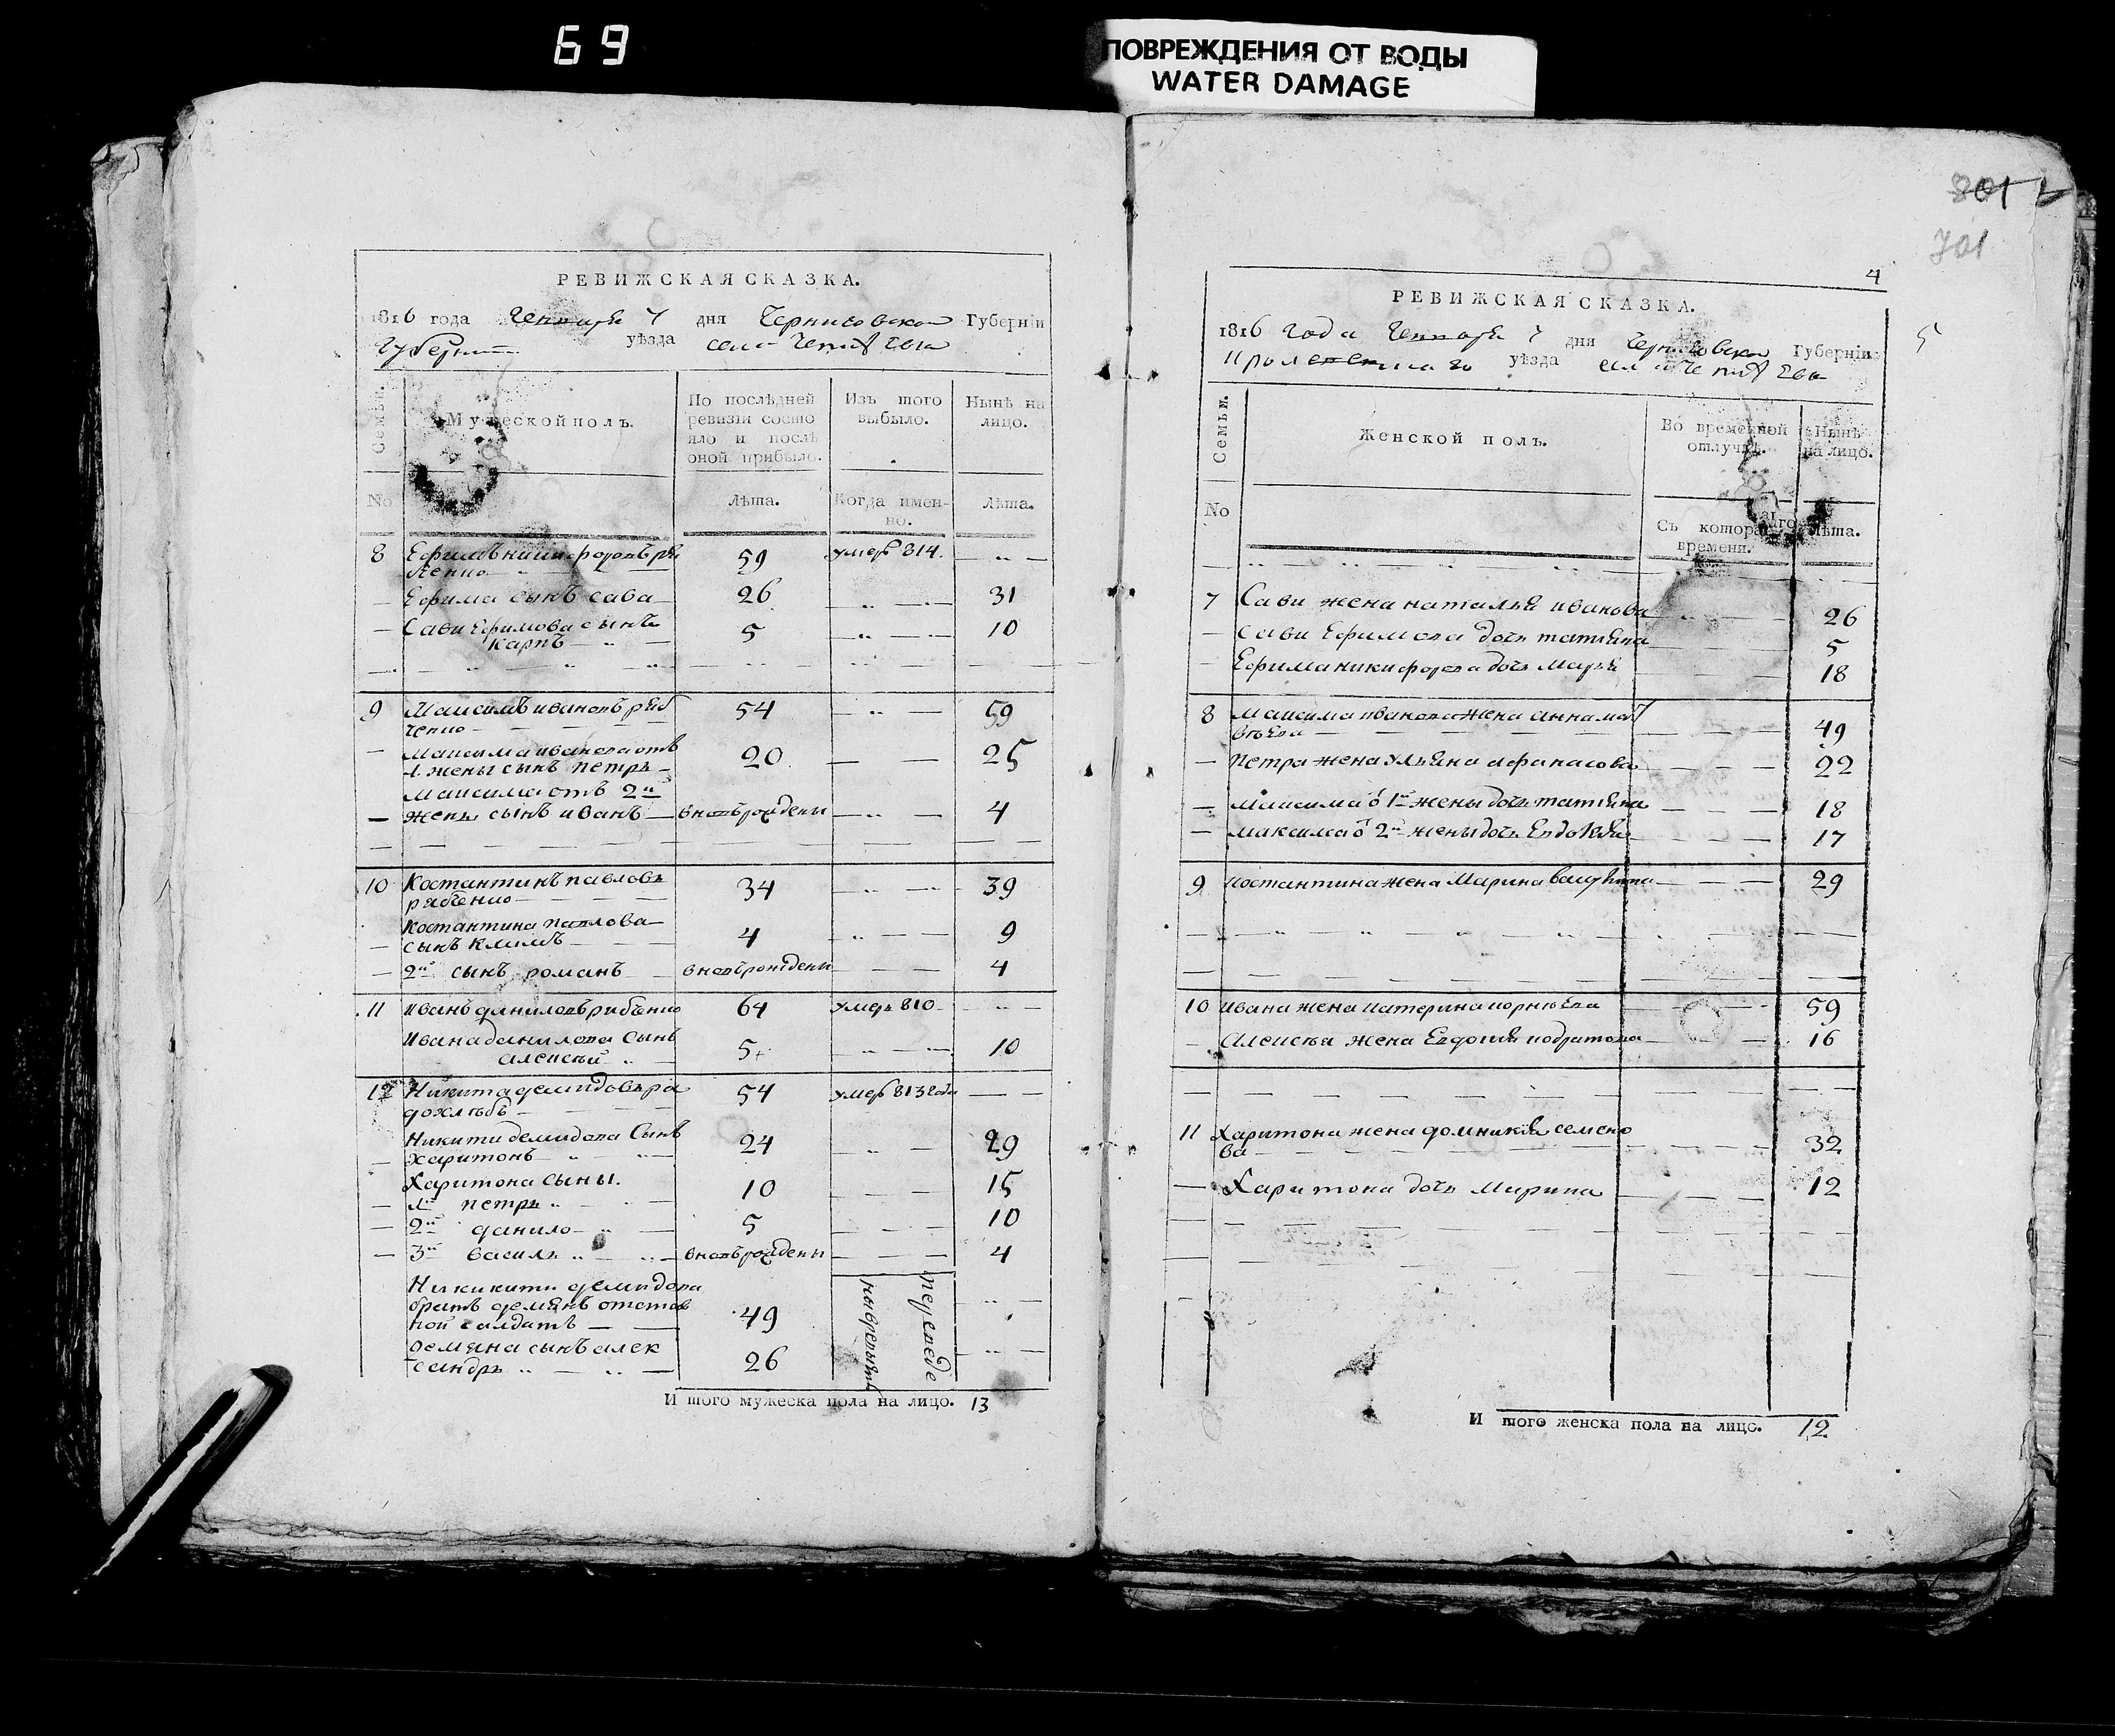 69
ПОВРЕЖДЕНИЯ ОТ ВОДЫ
WATER DAMAGE
РЕВИЖСКАЯ СКАЗКА.
1816 года Генваря 7 дня Черниговской Губерніи
уѣзда села
Семьи.
Мужеской полъ.
По послѣдней ревизіи состояло и послѣ оной прибыло.
Изъ того выбыло.
Нынѣ на лицо.
No
Лѣта.
Когда именно.
Лѣта.
8 Ефимъ никифоровъ ря
59 умеръ 814.
Ефима сынъ сава 26 31
Сави Ефимова сынъ
Карпъ 5 10
9 Максимъ ивановъ ряб
ченко 54 59
Максима иванова отъ
1 жены сынъ петръ 20 25
Максима отъ 2й
жены сынъ иванъ вновьрожденъ 4
10 Костантинъ павловъ
рябченко 34 39
Костантина павлова
сынъ климъ 4 9
2й сынъ романъ вновьрожденъ 4
11 Иванъ даниловъ рябченко 64 умеръ 810
Ивана данилова Сынъ
алексѣй 5 10
12 Никита демидовъ ра
дохлѣбъ 54 умеръ 813 года
Никити демидова Сынъ
харитонъ 24 29
Харитона сыны.
1й петръ 10 15
2й данило 5 10
3й василь вновьрожденъ 4
Никикити демидова
братъ демянъ отстав
ной салдатъ 49
демяна сынъ алек
сандръ 26
И того мужеска пола на лицо. 13
801
701
4
5
РЕВИЖСКАЯ СКАЗКА.
1816 года Генваря 7 дня Черниговской Губерніи
уѣзда села
Семьи.
Женской полъ.
Во временной отлучкѣ.
Нынѣ на лицо.
No
Съ котораго времени.
Лѣта.
7 Сави жена наталья иванова 26
Сави Ефимова дочь татяна 5
Ефима никифорова дочь Марья 18
8 Максима иванова жена анна мат
вѣева 49
Петра жена ульяна афанасова 22
Максима о 1й жены дочь татяна 18
Максима о 2й жены дочь Евдокія 17
9 Костантина жена Марина 29
10 Ивана жена катерина корнѣева 59
Алексѣя жена Евдокия кодратова 16
11 Харитона жена домникія семено
ва 32
Харитона дочь Марина 12
И того женска пола на лицо. 12